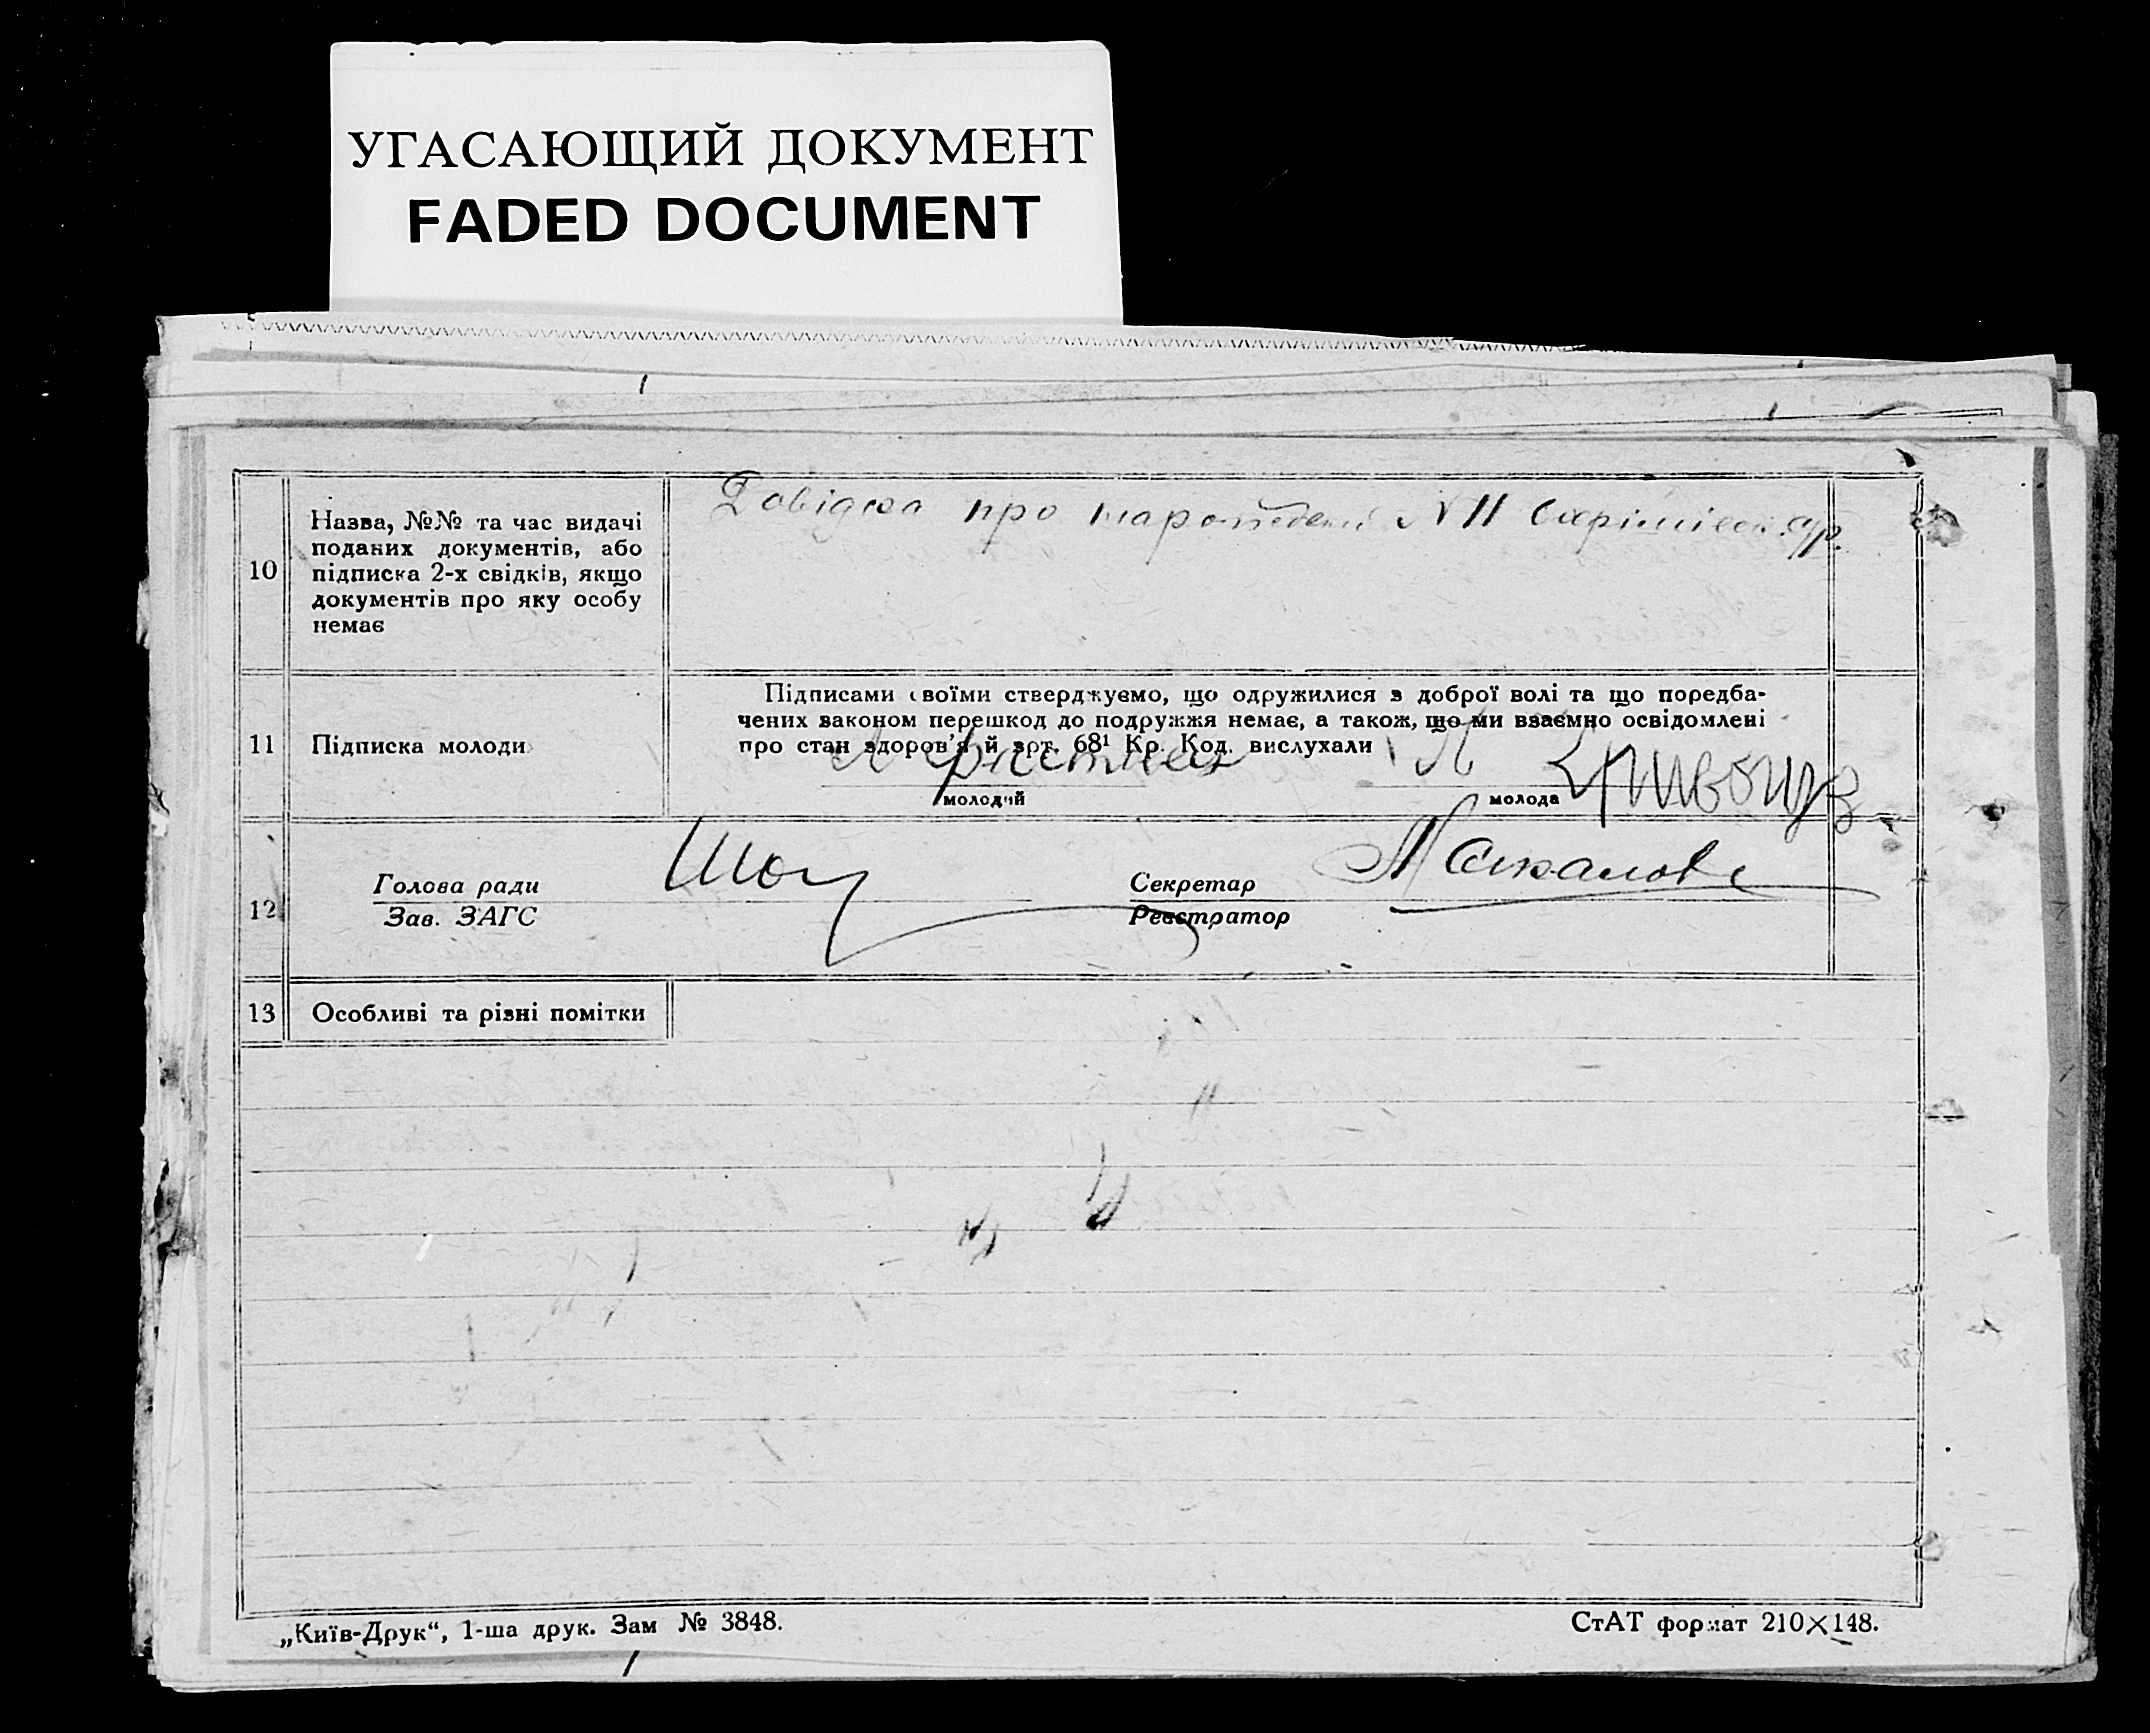 УГАСАЮЩИЙ ДОКУМЕНТ
FADED DOCUMENT
10
Назва, №№ та час видачі
поданих документів, або
підписка 2-х свідків, якщо
документів про яку особу
немає
Довідка про народження N 11
11
Підписка молоди
Підписами своїми стверджуємо, що одружилися з доброї волі та що поредба-
чених законом перешкод до подружжя немає, а також, що ми взаємно освідомлені
про стан здоров'я й арт. 68¹ Кр. Код. вислухали
молодий
молода
12
Голова ради
Зав. ЗАГС
Секретар
Реєстратор
13
Особливі та різні помітки
„Київ-Друк“, 1-ша друк. Зам № 3848.
СтАТ формат 210×148.